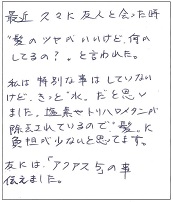 最近 スマに友人と会った時
"髪のツヤがいいけど、何か
してるの?"と言われた。
私は特別な事はしていない
けど、きっと"水"だと思い
ました。塩素やトリハロメタンが
除去されているので"髪"に
負担が少ないと思ってます。
友には、「アクアス5の事
伝えました。